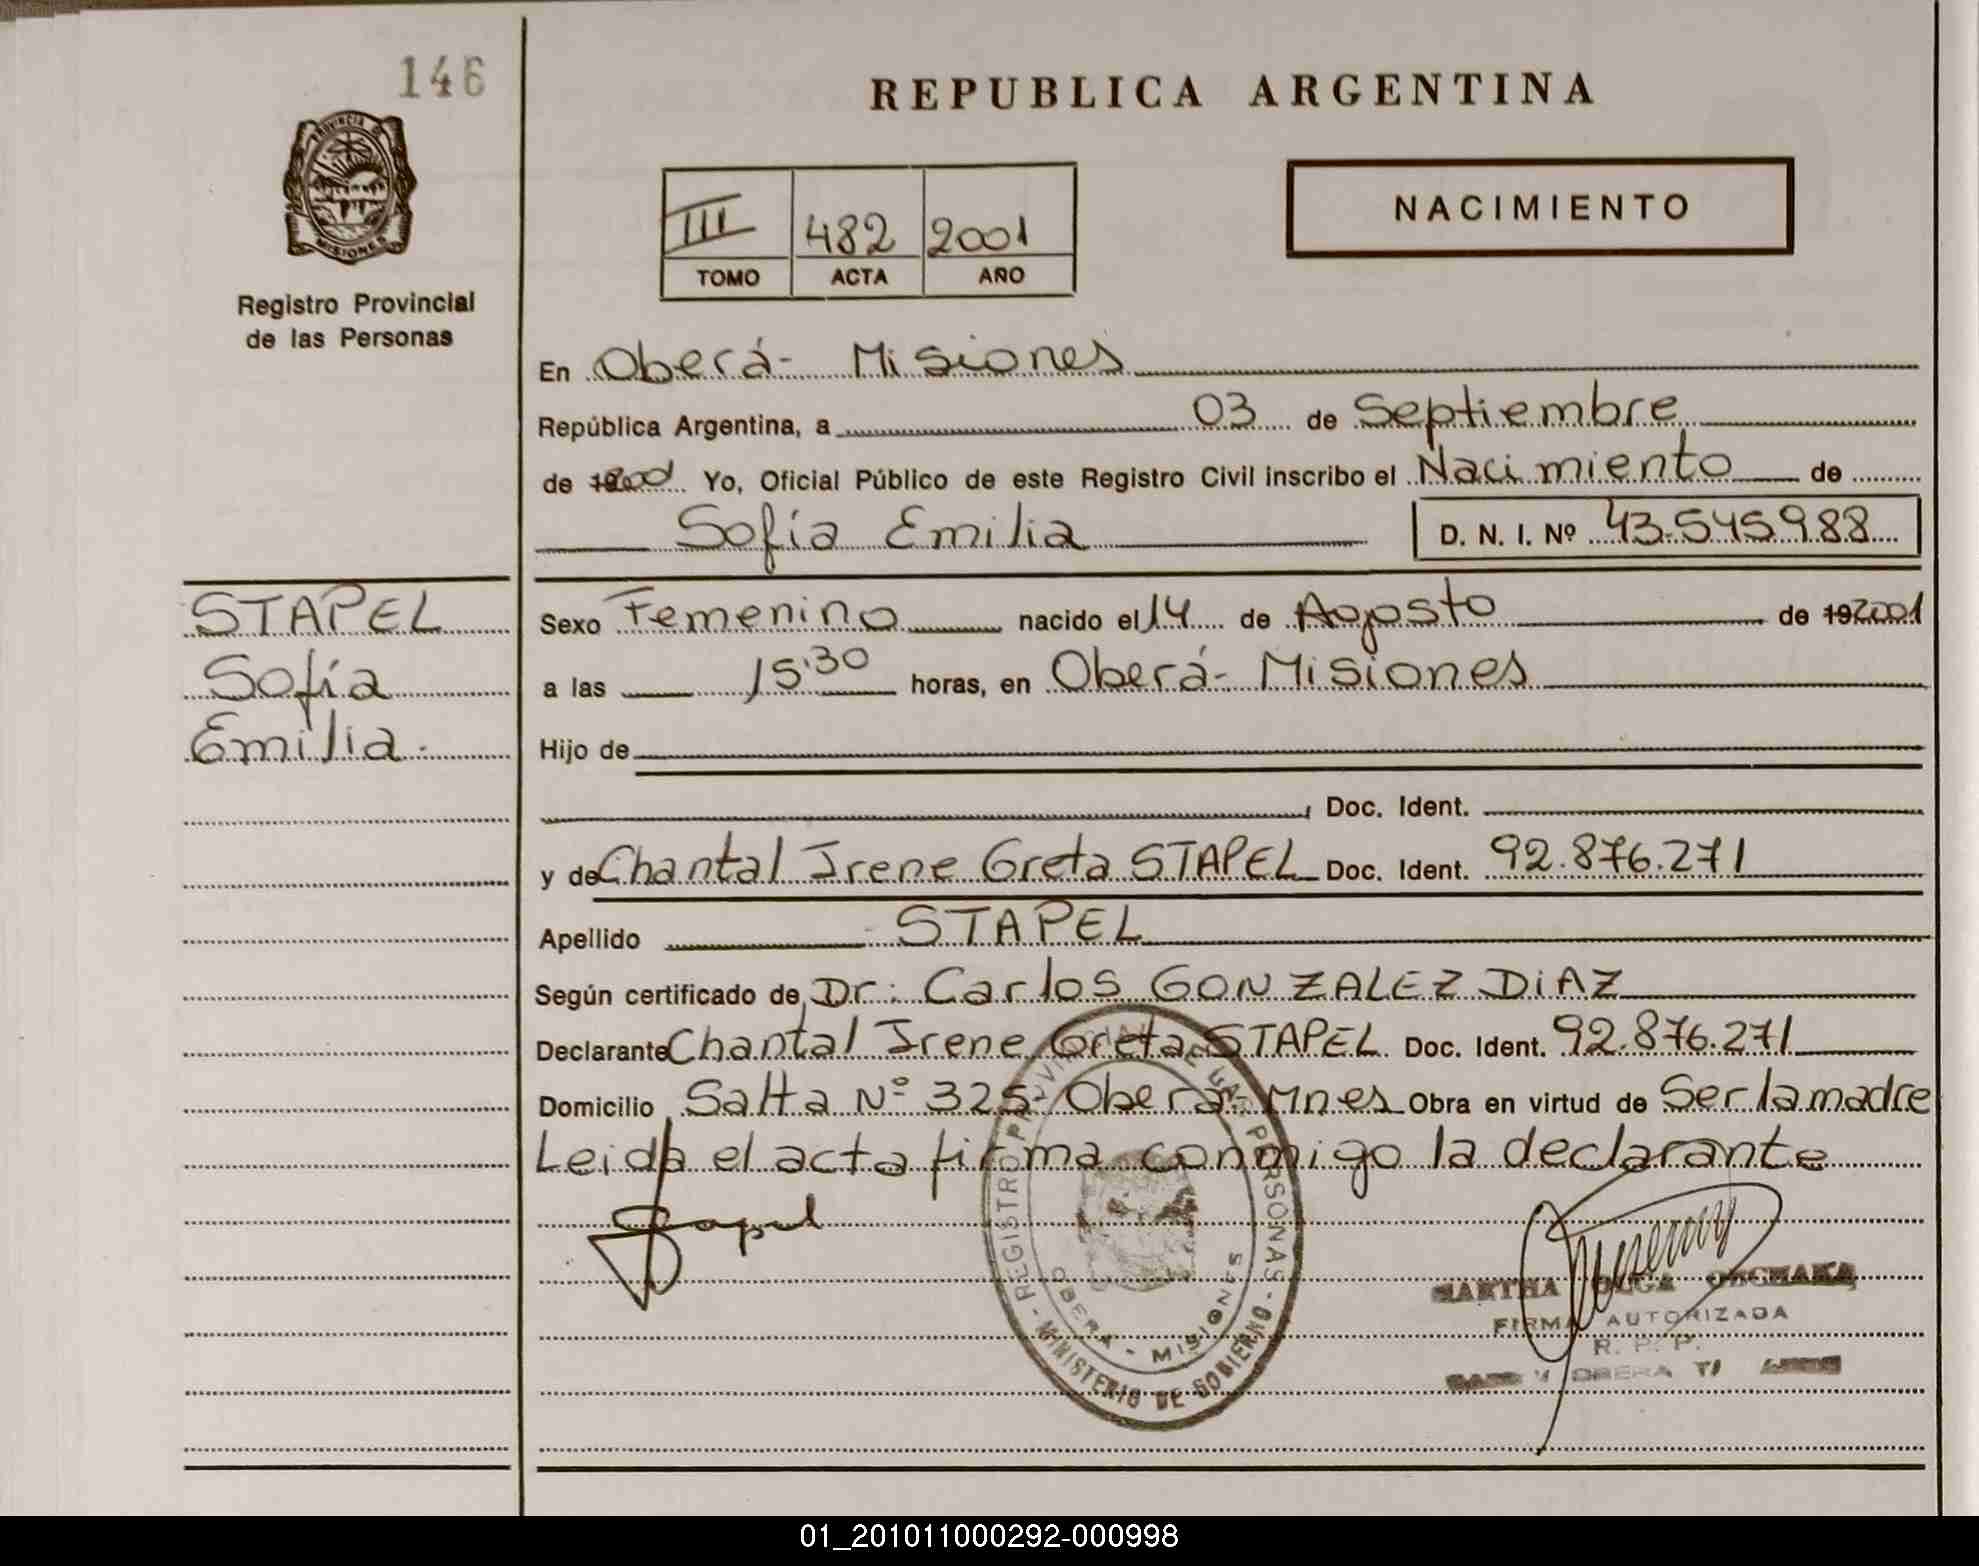 146
REPUBLICA ARGENTINA
PROVINCIA D
MISIONES
Registro Provincial
de las Personas
III 482 2001
TOMO ACTA AÑO
NACIMIENTO
En Oberá- Misiones
República Argentina, a 03 de Septiembre
de 2001 Yo, Oficial Público de este Registro Civil inscribo el Nacimiento de
Sofía Emilia D. N. I. Nº 43.545.988
STAPEL
Sofía
Emilia.
Sexo Femenino nacido el 14 de Agosto de 19 2001
a las 15:30 horas, en Oberá- Misiones
Hijo de
, Doc. Ident.
y de Chantal Irene Greta STAPEL Doc. Ident. 92.876.271
Apellido STAPEL
Según certificado de Dr: Carlos GONZALEZ DIAZ
Declarante Chantal Irene Greta STAPEL Doc. Ident. 92.876.271
Domicilio Salta Nº 325- Oberá- Mnes Obra en virtud de Ser la madre
Leida el acta firma conmigo la declarante
REGISTRO PROVINCIAL DE LAS PERSONAS
OBERA - MISIONES
MINISTERIO DE GOBIERNO
MARTHA OLGA
FIRMA AUTORIZADA
R. P. P.
OBERA
01_201011000292-000998